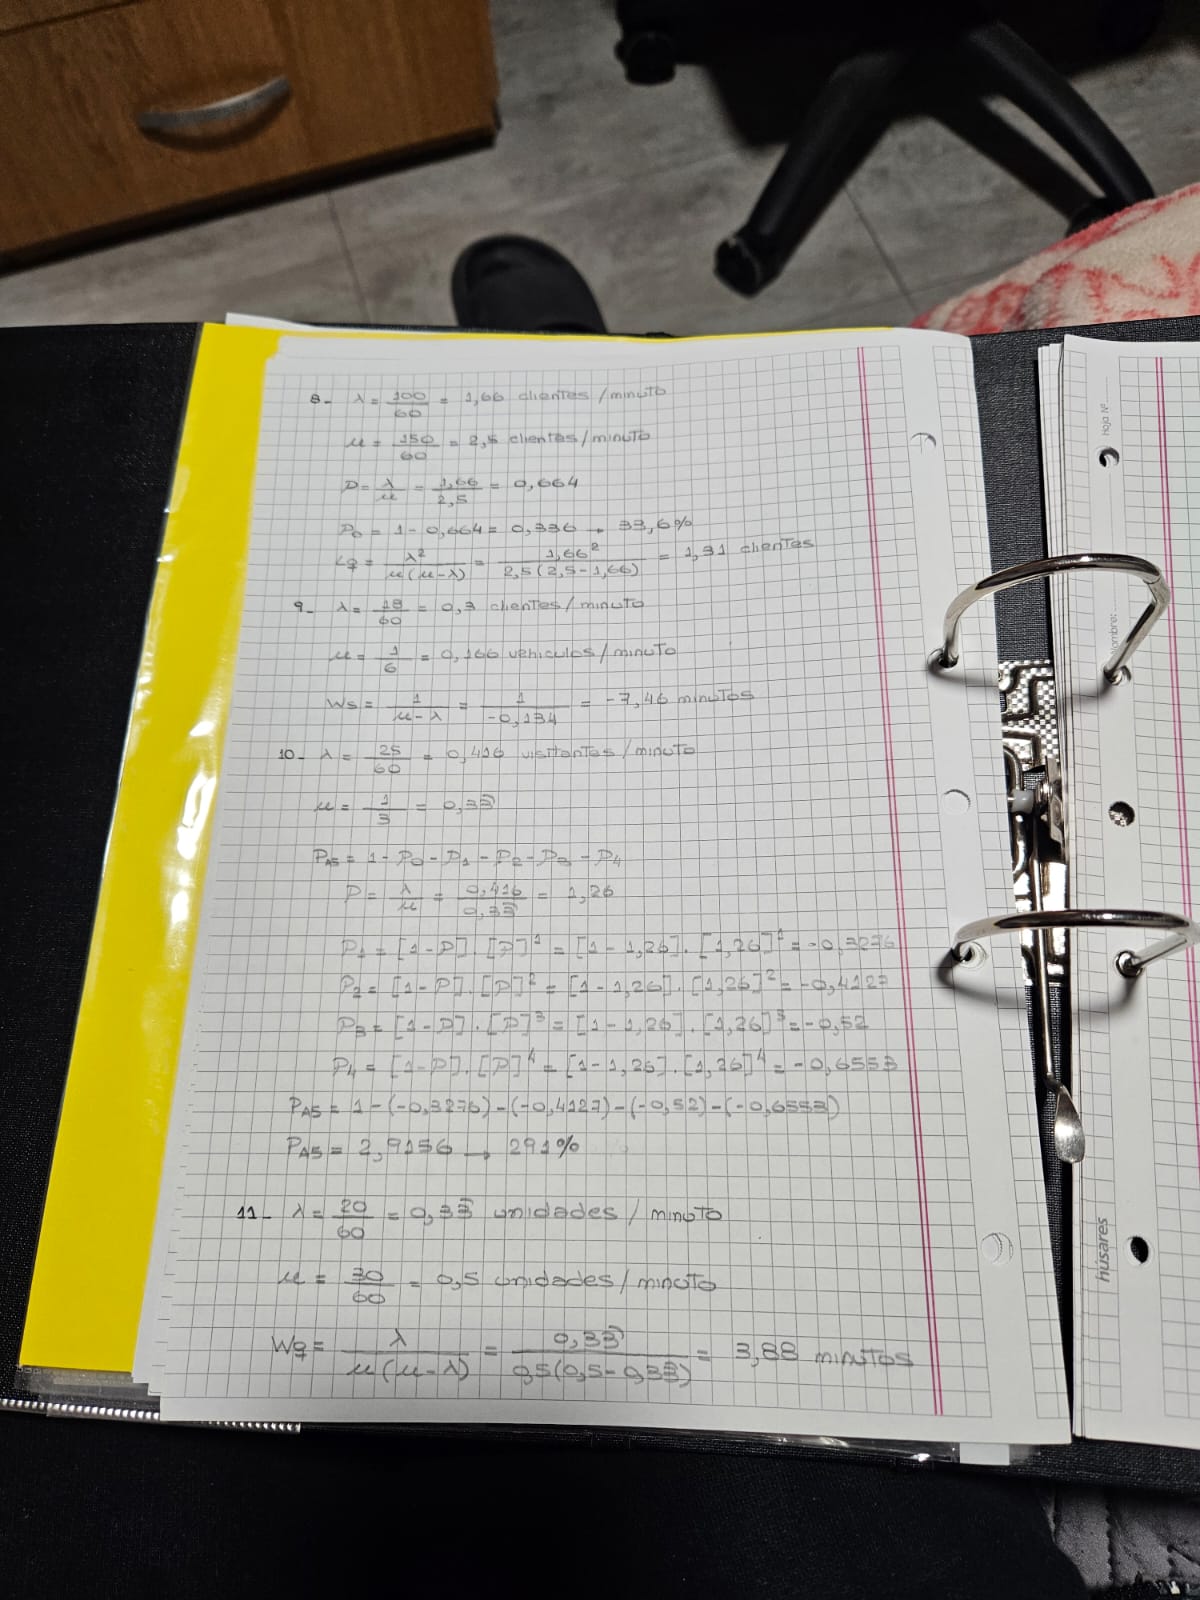 8- λ = 100/60 = 1,66 clientes/minuto
μ = 150/60 = 2,5 clientes/minuto
P = λ/μ = 1,66/2,5 = 0,664
P₀ = 1 - 0,664 = 0,336 → 33,6%
Lq = λ²/μ(μ-λ) = 1,66²/2,5(2,5-1,66) = 1,31 clientes
9- λ = 18/60 = 0,3 clientes/minuto
μ = 1/6 = 0,166 vehiculos/minuto
Ws = 1/μ-λ = 1/-0,134 = -7,46 minutos
10- λ = 25/60 = 0,416 visitantes/minuto
μ = 1/3 = 0,33
PA5 = 1 - P₀ - P₁ - P₂ - P₃ - P₄
P = λ/μ = 0,416/0,33 = 1,26
P₁ = [1-P].[P]¹ = [1-1,26].[1,26]¹ = -0,3276
P₂ = [1-P].[P]² = [1-1,26].[1,26]² = -0,4127
P₃ = [1-P].[P]³ = [1-1,26].[1,26]³ = -0,52
P₄ = [1-P].[P]⁴ = [1-1,26].[1,26]⁴ = -0,6553
PA5 = 1-(-0,3276)-(-0,4127)-(-0,52)-(-0,6553)
PA5 = 2,9156 → 291%
11- λ = 20/60 = 0,33 unidades/minuto
μ = 30/60 = 0,5 unidades/minuto
Wq = λ/μ(μ-λ) = 0,33/0,5(0,5-0,33) = 3,88 minutos
Hoja Nº
Nombre:
húsares